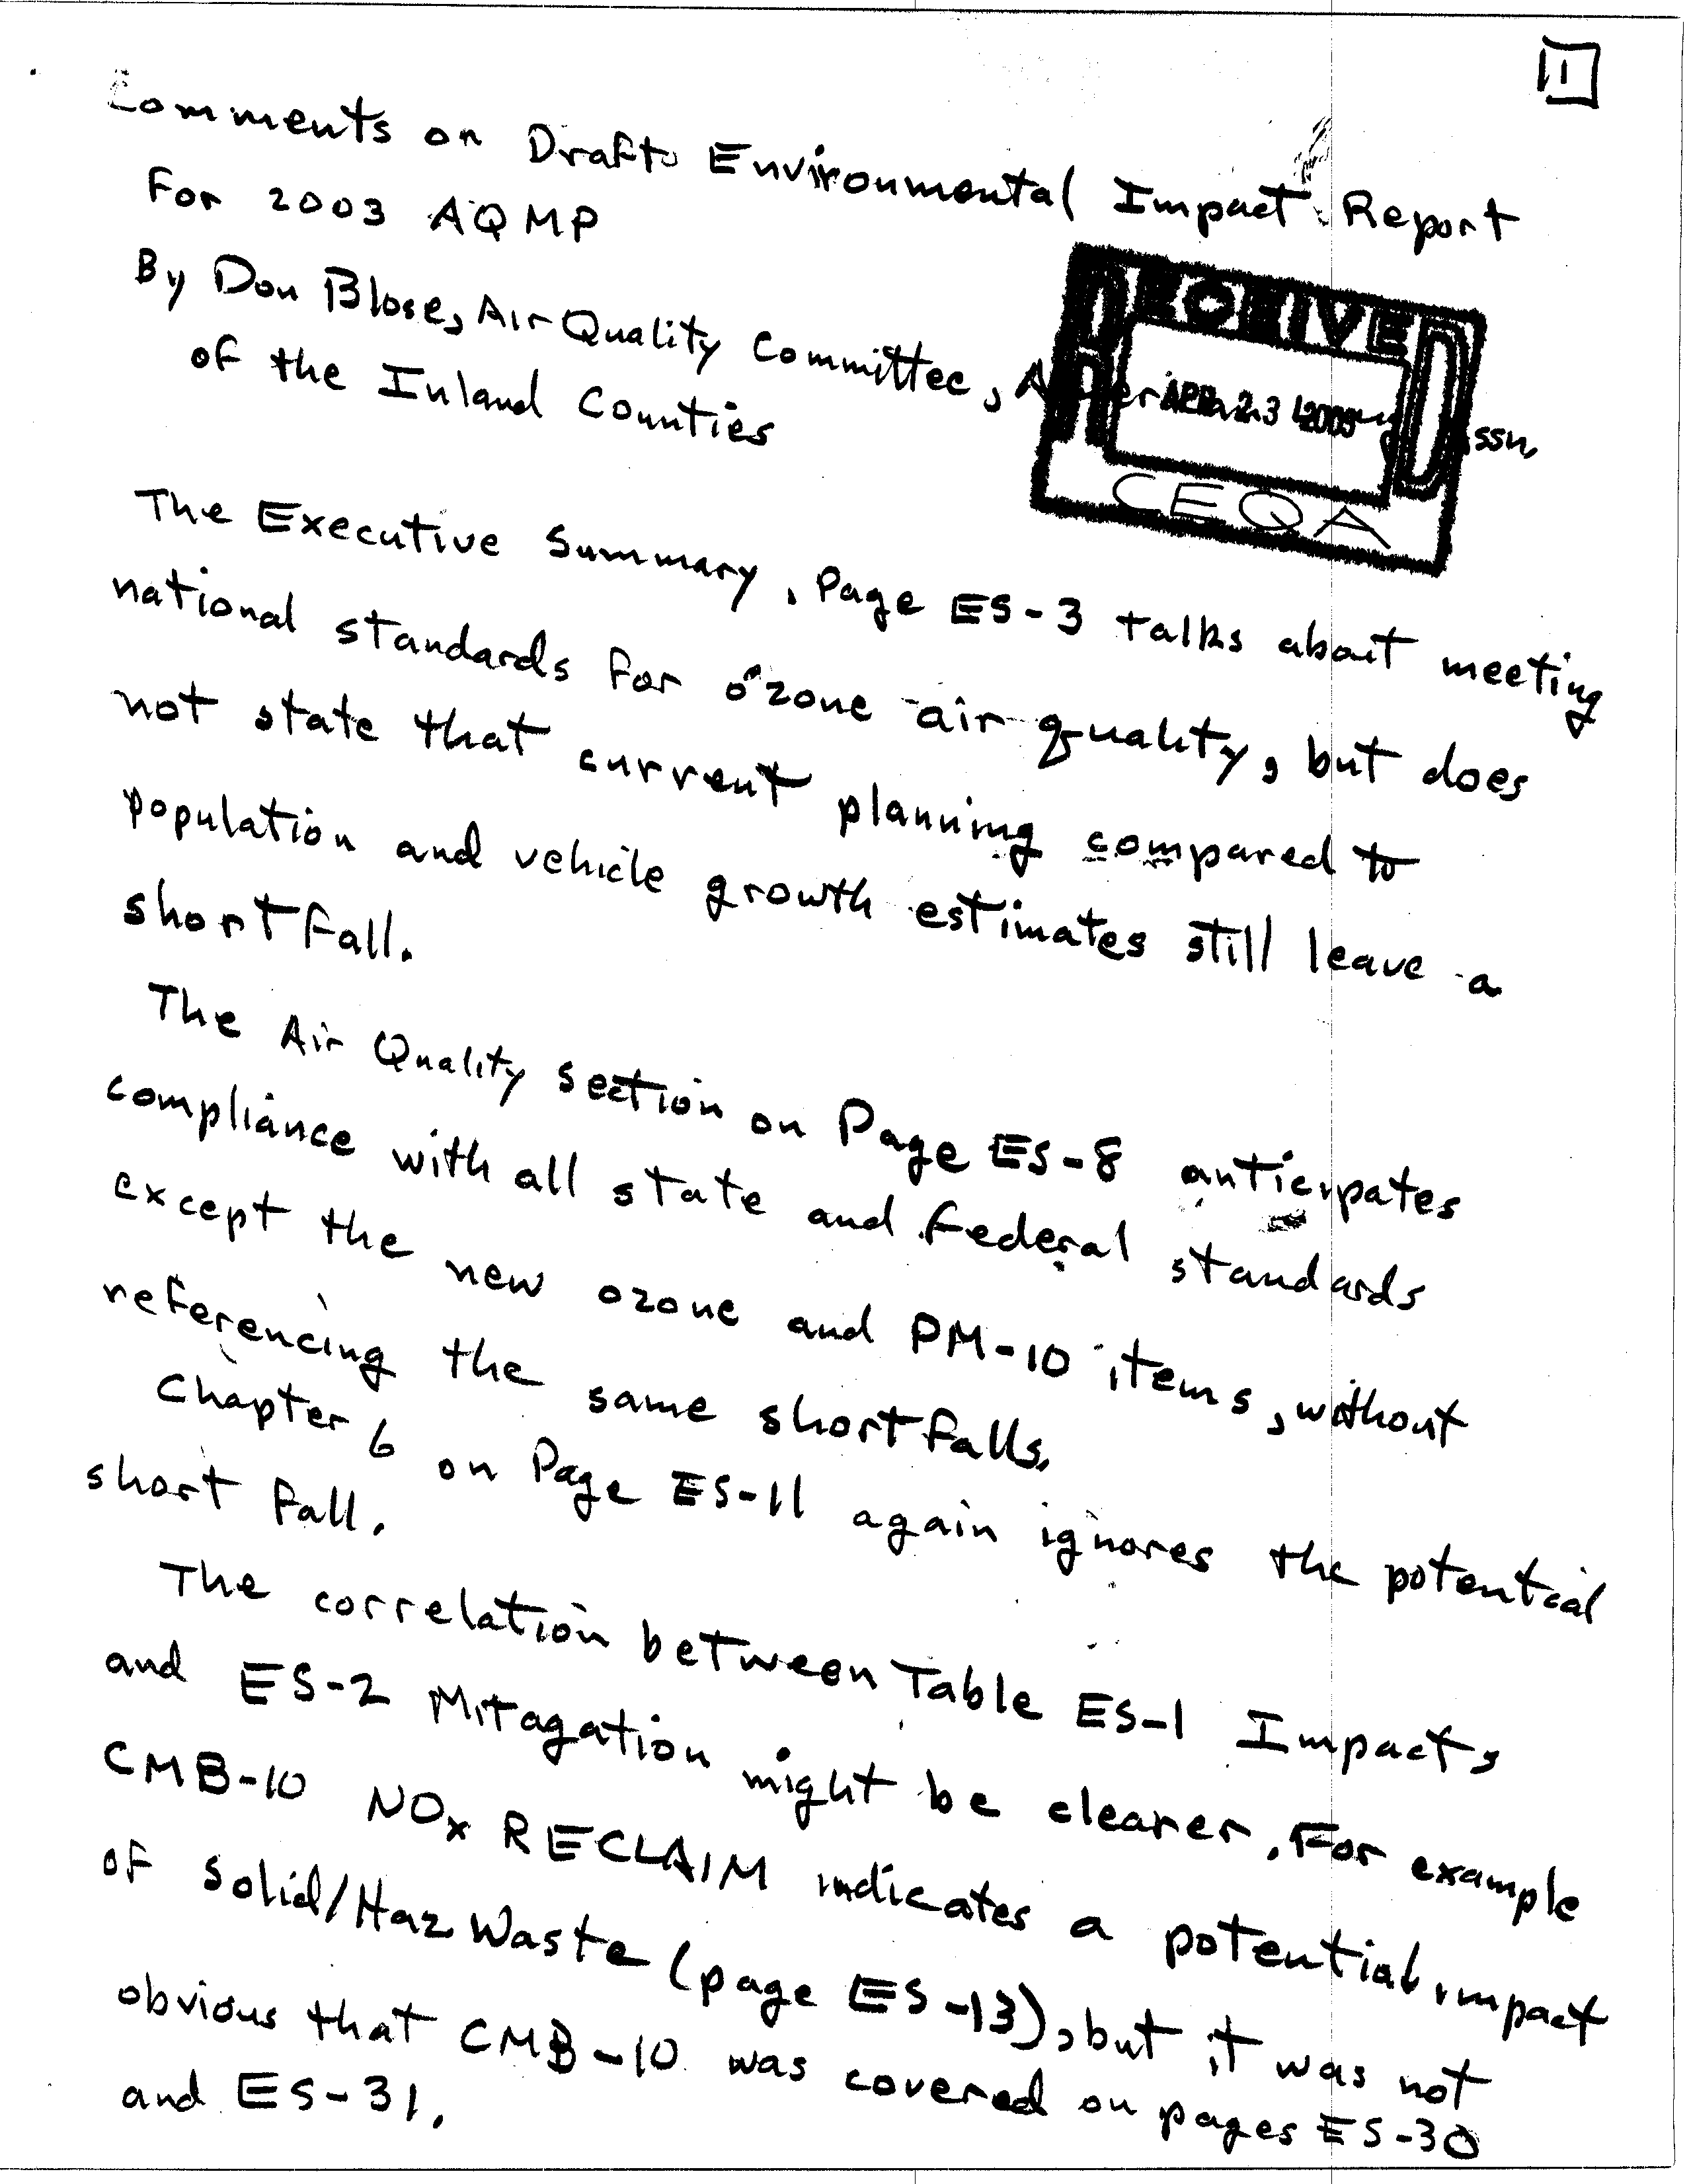 1
Comments on Draft Environmental Impact Report
For 2003 AQMP
By Don Blose, Air Quality Committee, American Lung Assn.
of the Inland Counties
RECEIVED
APR 23 2003
CEQA
The Executive Summary, Page ES-3 talks about meeting
national standards for ozone air quality, but does
not state that current planning compared to
population and vehicle growth estimates still leave a
shortfall.
The Air Quality section on Page ES-8 anticipates
compliance with all state and federal standards
except the new ozone and PM-10 items, without
referencing the same shortfalls.
Chapter 6 on Page ES-11 again ignores the potential
short fall.
The correlation between Table ES-1 Impacts
and ES-2 Mitagation might be clearer. For example
CMB-10 NOx RECLAIM indicates a potential impact
of Solid/Haz Waste (page ES-13), but it was not
obvious that CMB-10 was covered on pages ES-30
and ES-31.